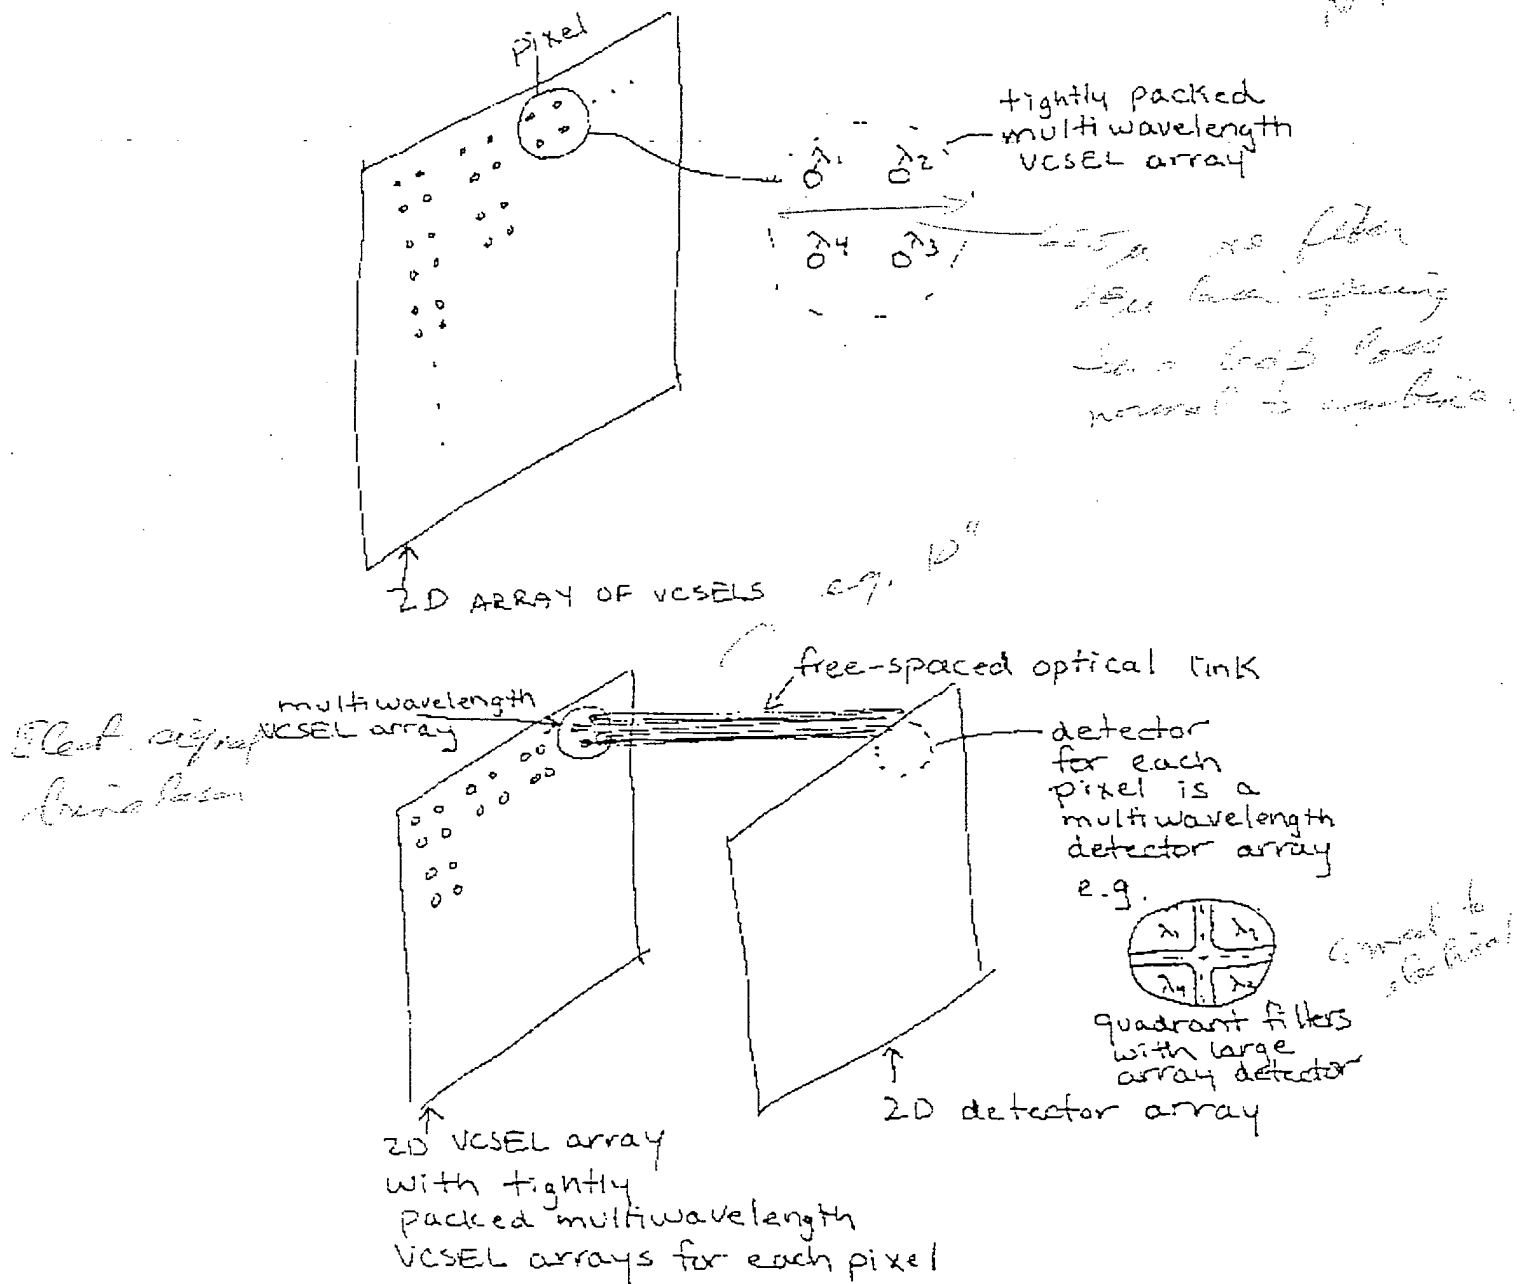 pixel
tightly packed
multiwavelength
VCSEL array
λ1 λ2
λ4 λ3
normal to
2D ARRAY OF VCSELS e.g. 10"
free-spaced optical link
multiwavelength
VCSEL array
Elect. signal
detector
for each
pixel is a
multiwavelength
detector array
e.g.
λ1 λ2
λ4 λ3
quadrant filters
with large
array detector
2D detector array
2D VCSEL array
with tightly
packed multiwavelength
VCSEL arrays for each pixel